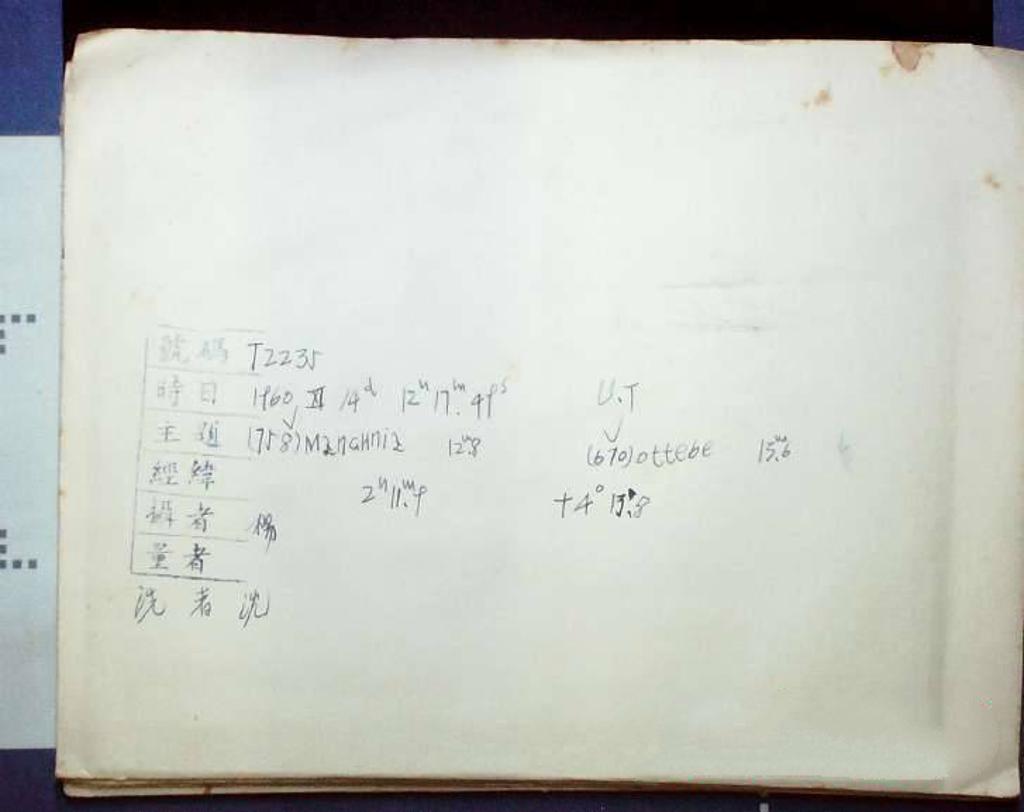 號碼 T2235
時日 1960 XI 14ᵈ 12ʰ 17ᵐ.49ˢ U.T
主題 (758) Mancunia 12ᵐ.8 (670) ottebe 15ᵐ.6
經緯 2ʰ 11ᵐ.9 +4° 13'.8
攝者 楊
量者
洗者 沈